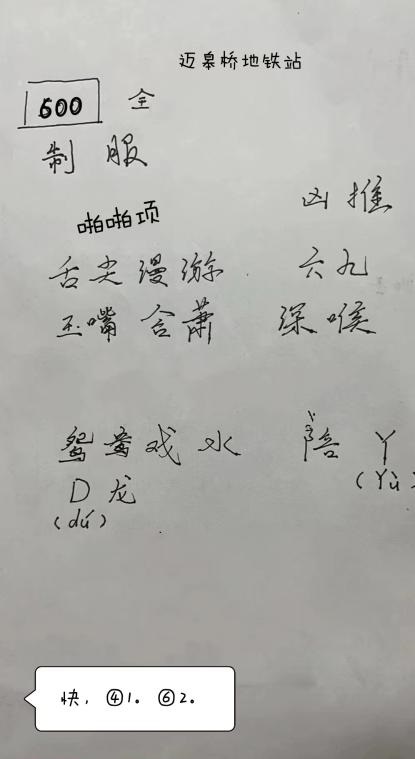 迈皋桥地铁站
600 全
制服
啪啪项
凶推
舌尖漫游 六九
玉嘴含萧 深喉
鸳鸯戏水 陪丫
D龙 (Yù
(dú)
快,④1。⑥2。